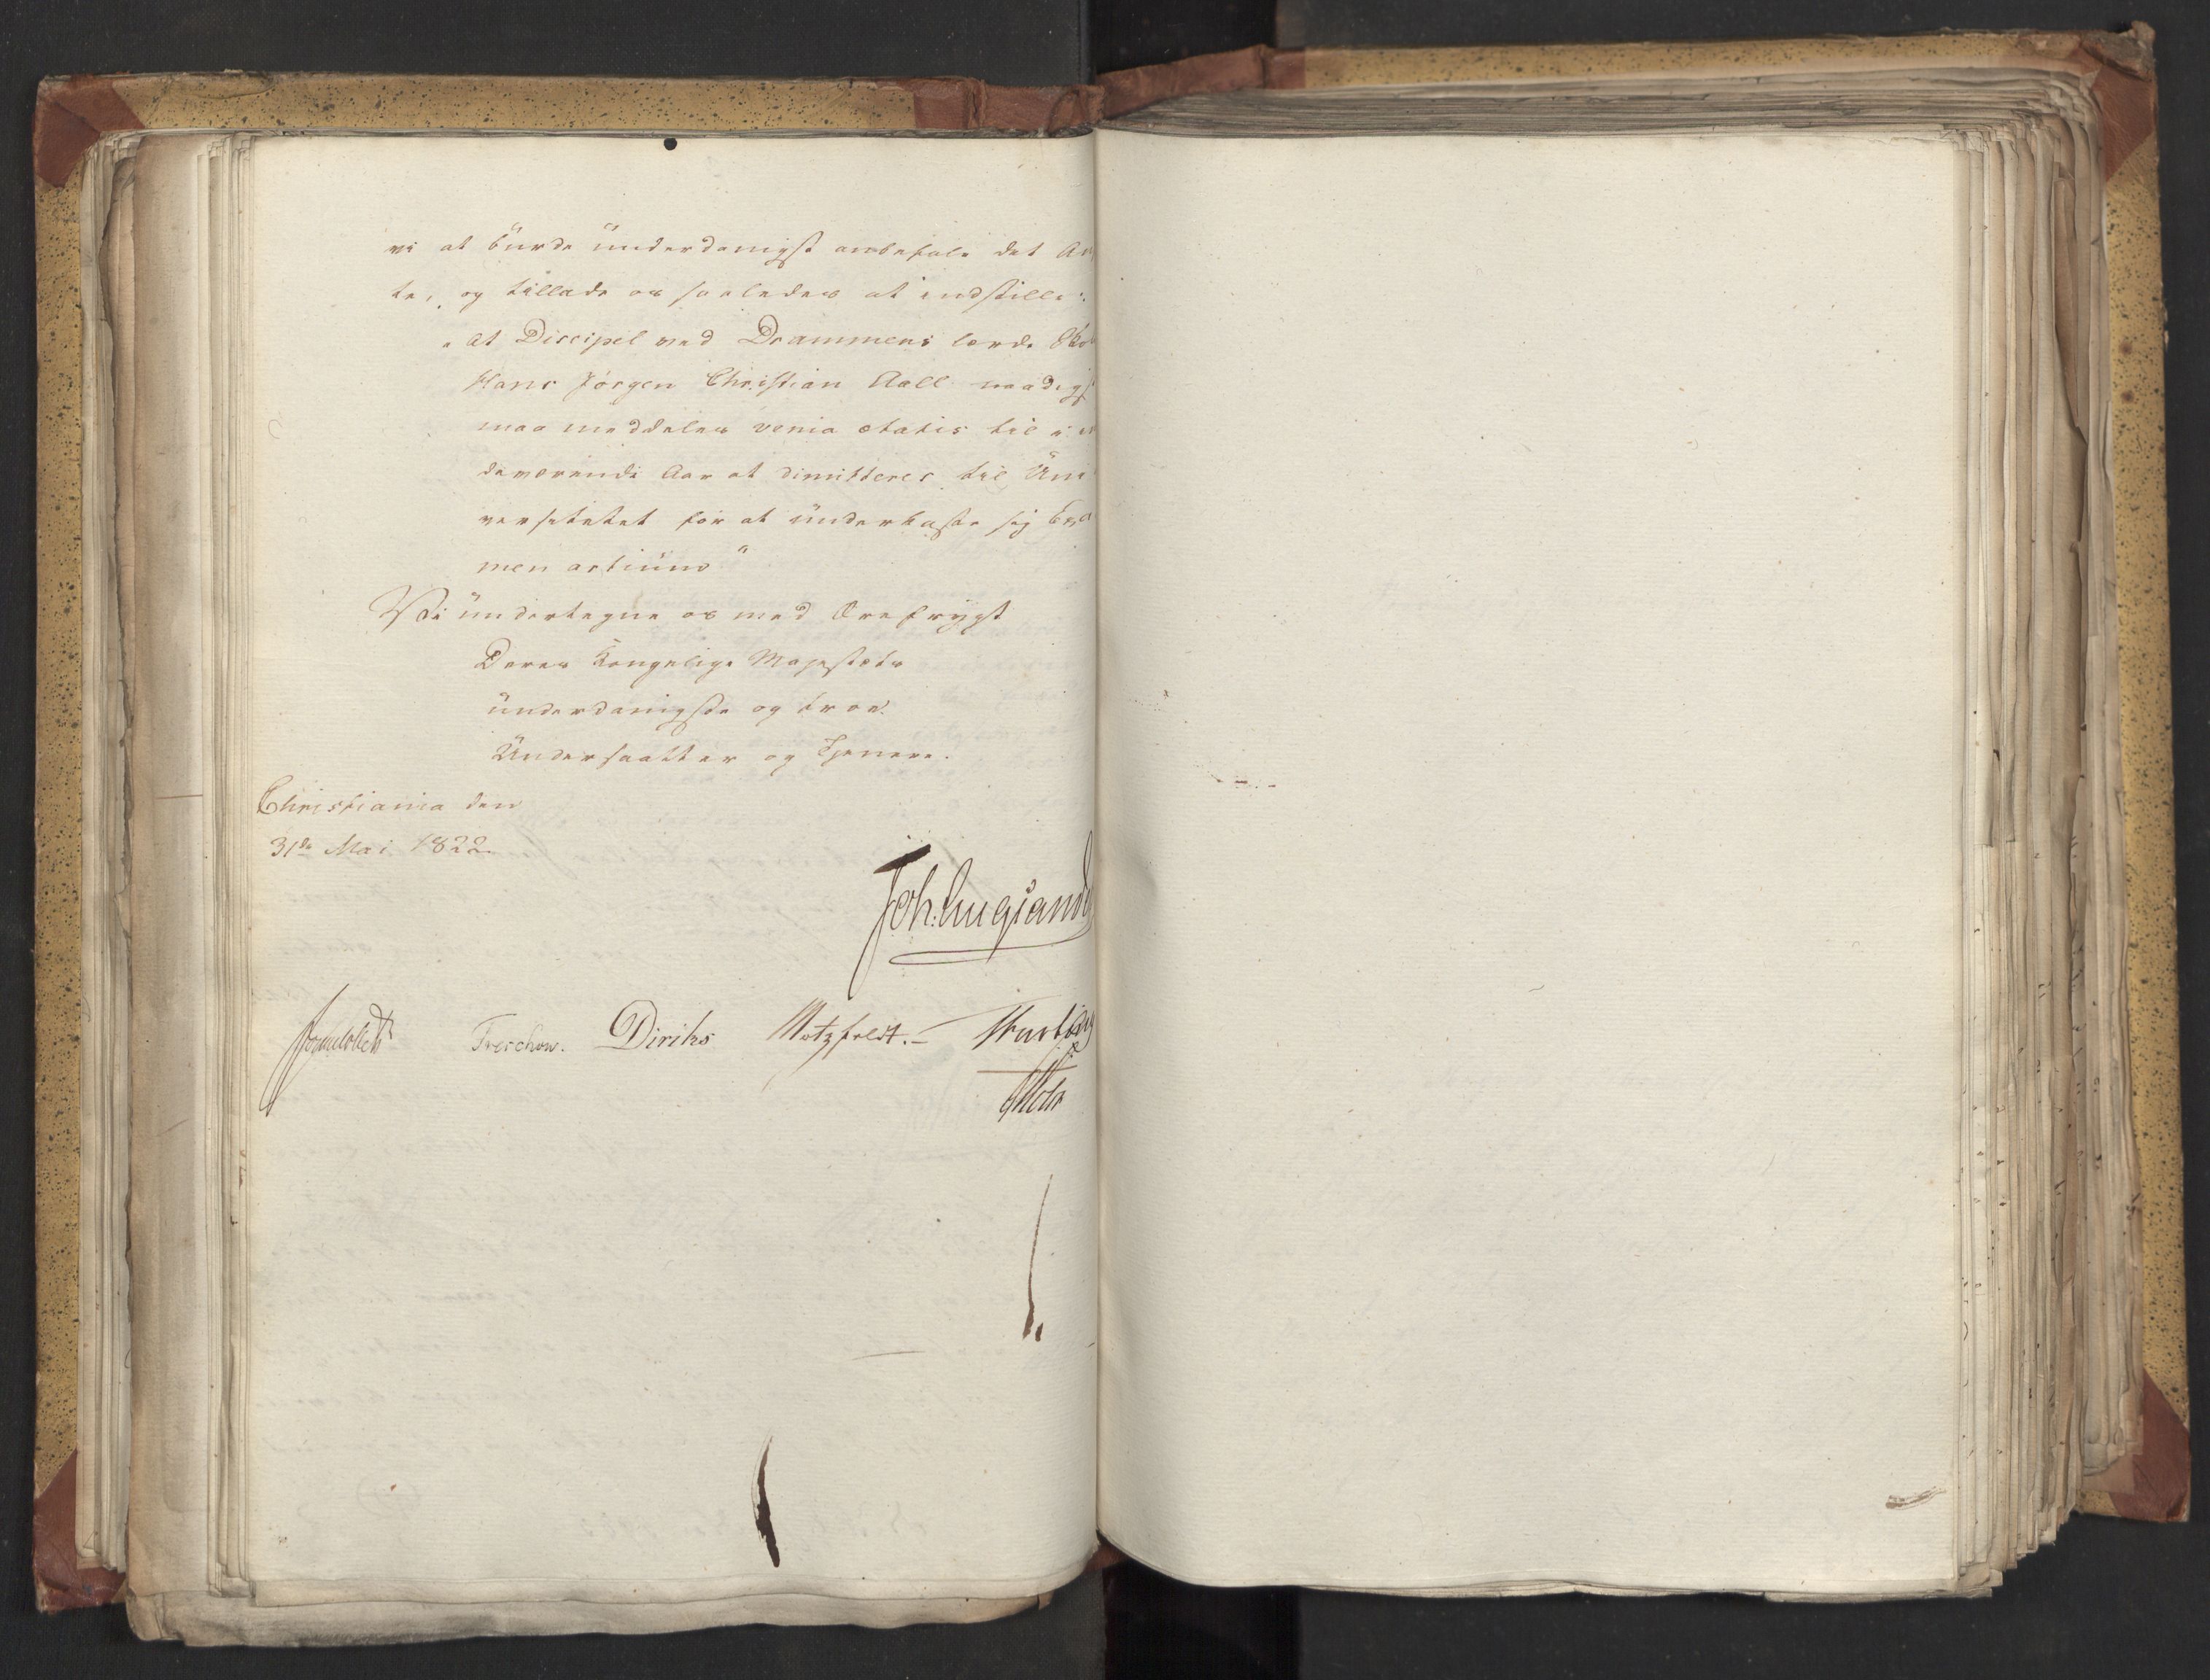 vi at burde underdanigst anbefale det An
te, og tillade os saaledes at indstille:
"At Discipel ved Drammens lærde Sko
Hans Jørgen Christian Aall naadigst
maa meddeles venia ætatis til i in
deværende Aar at dimitteres til Uni
versitetet for at underkaste sig Exa
men artium"
Vi undertegne os med Ærefrygt
Deres Kongelige Majestæts
underdanigste og troe
Undersaatter og Tjenere.
Christiania den
31de Mai 1822.
Joh: Aug Sande
Treschow. Diriks Motzfeldt.